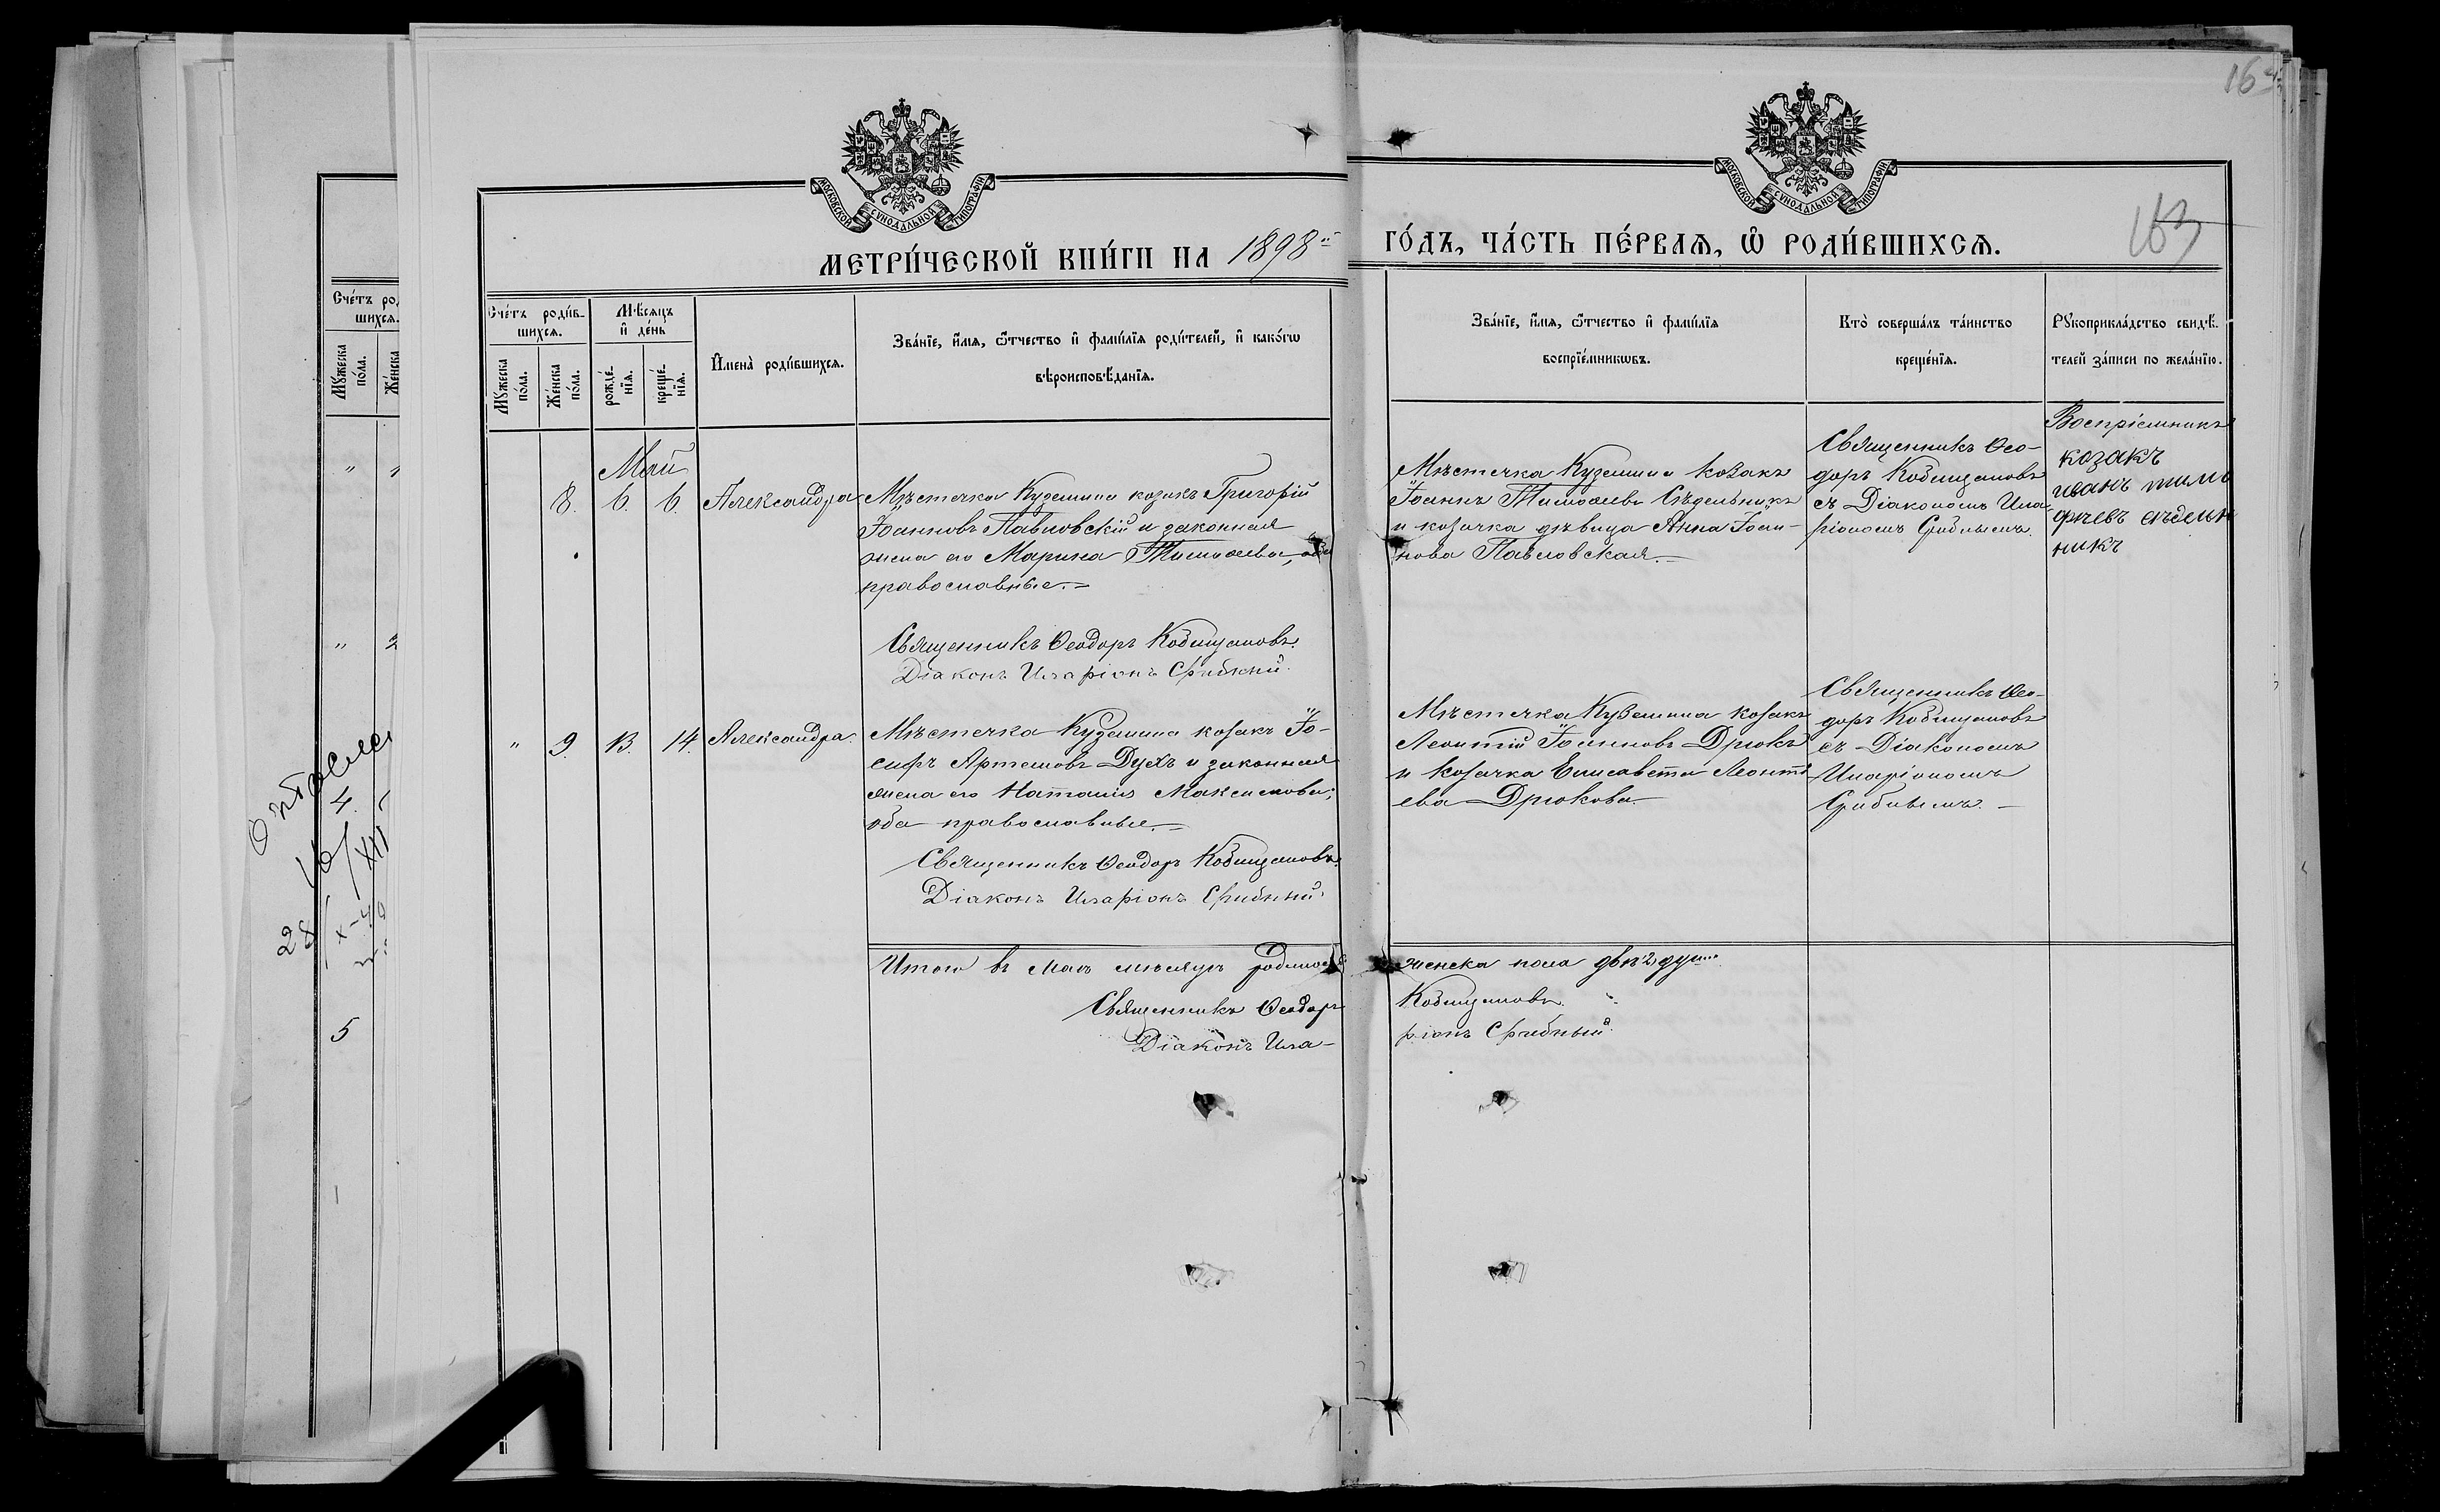 МОСКОВСКОЙ СѴНОДАЛЬНОЙ ТИПОГРАФІИ
МОСКОВСКОЙ СѴНОДАЛЬНОЙ ТИПОГРАФІИ
163
МЕТРИ́ЧЕСКОЙ КНИ́ГИ НА 1898й ГО́ДЪ, ЧА́СТЬ ПЕ́РВАѦ, Ѡ҆ РОДИ́ВШИХСѦ.
Сче́тъ роди́в-
шихсѧ.
Мꙋ́жеска по́ла.
Же́нска по́ла.
Мѣ́сѧцъ
и҆ де́нь
рожде́-
нїѧ.
креще́-
нїѧ.
И҆мена̀ роди́вшихсѧ.
Зва́нїе, и҆́мѧ, ѻ҆́тчество и҆ фами́лїѧ роди́телей, и҆ како́гѡ
вѣроисповѣ́данїѧ.
Зва́нїе, и҆́мѧ, ѻ҆́тчество и҆ фами́лїѧ
воспрїе́мникѡвъ.
Кто̀ соверша́лъ та́инство
креще́нїѧ.
Рꙋкоприкла́дство свидѣ́-
телей за́писи по жела́нїю.
Май
8. 6. 6. Александра
Мѣстечка Куземина козакъ Григорій
Іоанновъ Павловскій и законная
жена его Марина Тимоѳеева, оба
православные.
Священникъ Ѳеодоръ Кобищановъ.
Діаконъ Иларіонъ Срибный.
Мѣстечка Куземина козакъ
Іоаннъ Тимоѳеевъ Сѣдельникъ
и козачка дѣвица Анна Іоан-
нова Павловская.
Священникъ Ѳео-
доръ Кобищановъ
съ Діакономъ Ила-
ріономъ Срибнымъ.
Воспріемникъ
козакъ
иванъ тимо
фѣевъ сѣдель
никъ
" 9. 13. 14. Александра.
Мѣстечка Куземина козакъ Іо-
сифъ Артемовъ Духъ и законная
жена его Наталія Максимова;
оба православные.
Священникъ Ѳеодоръ Кобищановъ.
Діаконъ Иларіонъ Срибный.
Мѣстечка Куземина козакъ
Леонтій Іоанновъ Дрюкъ
и козачка Елисавета Леонті-
ева Дрюкова.
Священникъ Ѳео-
доръ Кобищановъ
съ Діакономъ
Иларіономъ
Срибнымъ.
Итого въ маѣ мѣсяцѣ родилось женска пола двѣ 2 души.
Священникъ Ѳеодоръ Кобищановъ.
Діаконъ Ила-ріонъ Срибный.
Сче́тъ ро
шихсѧ.
Мꙋ́жеска по́ла.
Же́нска
4.
16/XII
28
5